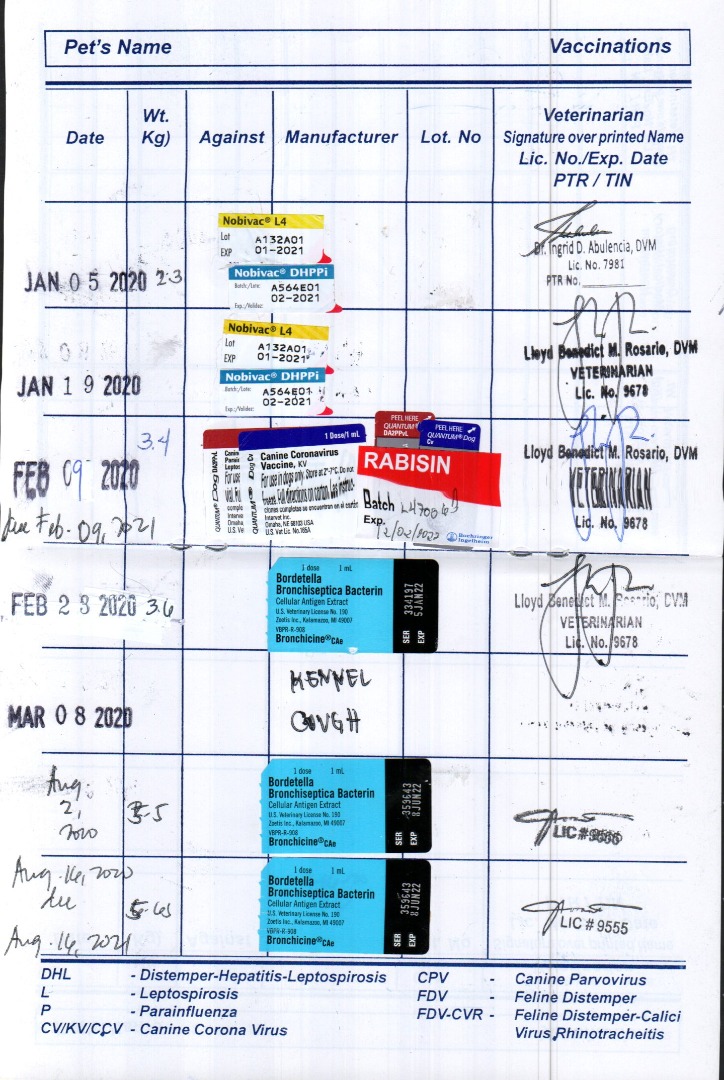 Pet's Name Vaccinations
Date Wt. Kg) Against Manufacturer Lot. No Veterinarian
Signature over printed Name
Lic. No./Exp. Date
PTR / TIN
JAN 05 2020 2.3
Nobivac® L4
Lot A132A01
EXP 01-2021
Nobivac® DHPPi
Batch/Lote: A564E01
02-2021
Exp.:/Validez:
Dr. Ingrid D. Abulencia, DVM
Lic. No. 7981
PTR No.
JAN 19 2020
Nobivac® L4
Lot A132A01
EXP 01-2021
Nobivac® DHPPi
Batch/Lote: A564E01
02-2021
Exp.:/Validez:
Lloyd Benedict M. Rosario, DVM
VETERINARIAN
Lic. No. 9678
FEB 09 2020 3.4
Feb. 09, 2021
QUANTUM® Dog DA2PPvL
QUANTUM® Dog Cv
1 Dose/1 mL
Canine Coronavirus
Vaccine, KV
For use in dogs only. Store at 2°-7°C. Do not
freeze. Full directions on carton.
Intervet Inc.
Omaha, NE 68103 USA
U.S. Vet Lic. No. 165A
PEEL HERE
QUANTUM® Dog
DA2PPvL
PEEL HERE
QUANTUM® Dog
Cv
RABISIN
Batch
Exp.
12/02/2022
Boehringer
Ingelheim
Lloyd Benedict M. Rosario, DVM
VETERINARIAN
Lic. No. 9678
FEB 23 2020 3.6
1 dose 1 mL
Bordetella
Bronchiseptica Bacterin
Cellular Antigen Extract
U.S. Veterinary License No. 190
Zoetis Inc., Kalamazoo, MI 49007
VBPR-R-908
Bronchicine®CAe
SER 334197
EXP 5JAN22
Lloyd Benedict M. Rosario, DVM
VETERINARIAN
Lic. No. 9678
MAR 08 2020
KENNEL
COUGH
Aug.
2,
2020
1 dose 1 mL
Bordetella
Bronchiseptica Bacterin
Cellular Antigen Extract
U.S. Veterinary License No. 190
Zoetis Inc., Kalamazoo, MI 49007
VBPR-R-908
Bronchicine®CAe
SER 359643
EXP 8JUN22
LIC #9555
Aug. 16, 2020
Aug. 16, 2021
1 dose 1 mL
Bordetella
Bronchiseptica Bacterin
Cellular Antigen Extract
U.S. Veterinary License No. 190
Zoetis Inc., Kalamazoo, MI 49007
VBPR-R-908
Bronchicine®CAe
SER 359643
EXP 8JUN22
LIC #9555
DHL - Distemper-Hepatitis-Leptospirosis
L - Leptospirosis
P - Parainfluenza
CV/KV/CCV - Canine Corona Virus
CPV - Canine Parvovirus
FDV - Feline Distemper
FDV-CVR - Feline Distemper-Calici
Virus Rhinotracheitis